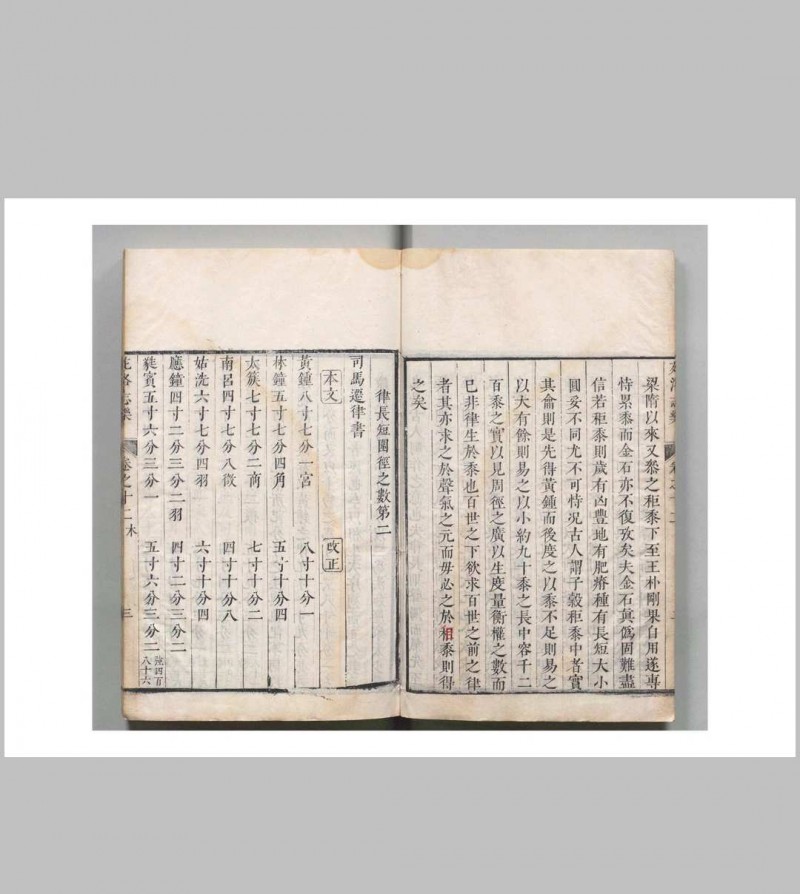 梁隋以來又參之秬黍下至王朴剛果自用遂專
恃累黍而金石亦不復攷矣夫金石眞僞固難盡
信若秬黍則歲有凶豐地有肥瘠種有長短大小
圓妥不同尤不可恃况古人謂子穀秬黍中者實
其龠則是先得黃鍾而後度之以黍不足則易之
以大有餘則易之以小約九十黍之長中容千二
百黍之實以見周徑之廣以生度量衡權之數而
已非律生於黍也百世之下欲求百世之前之律
者其亦求之於聲氣之元而毋必之於秬黍則得
之矣
律長短圍徑之數第二
司馬遷律書
本文 改正
黃鍾八寸七分一宮 八寸十分一
林鐘五寸七分四角 五寸十分四
太簇七寸七分二商 七寸十分二
南呂四寸七分八徵 四寸十分八
姑洗六寸七分四羽 六寸十分四
應鐘四寸二分三分二羽 四寸二分三分二
蕤賓五寸六分三分一 五寸六分三分二 強四百八十六
苑洛志樂 卷之十二 木 三